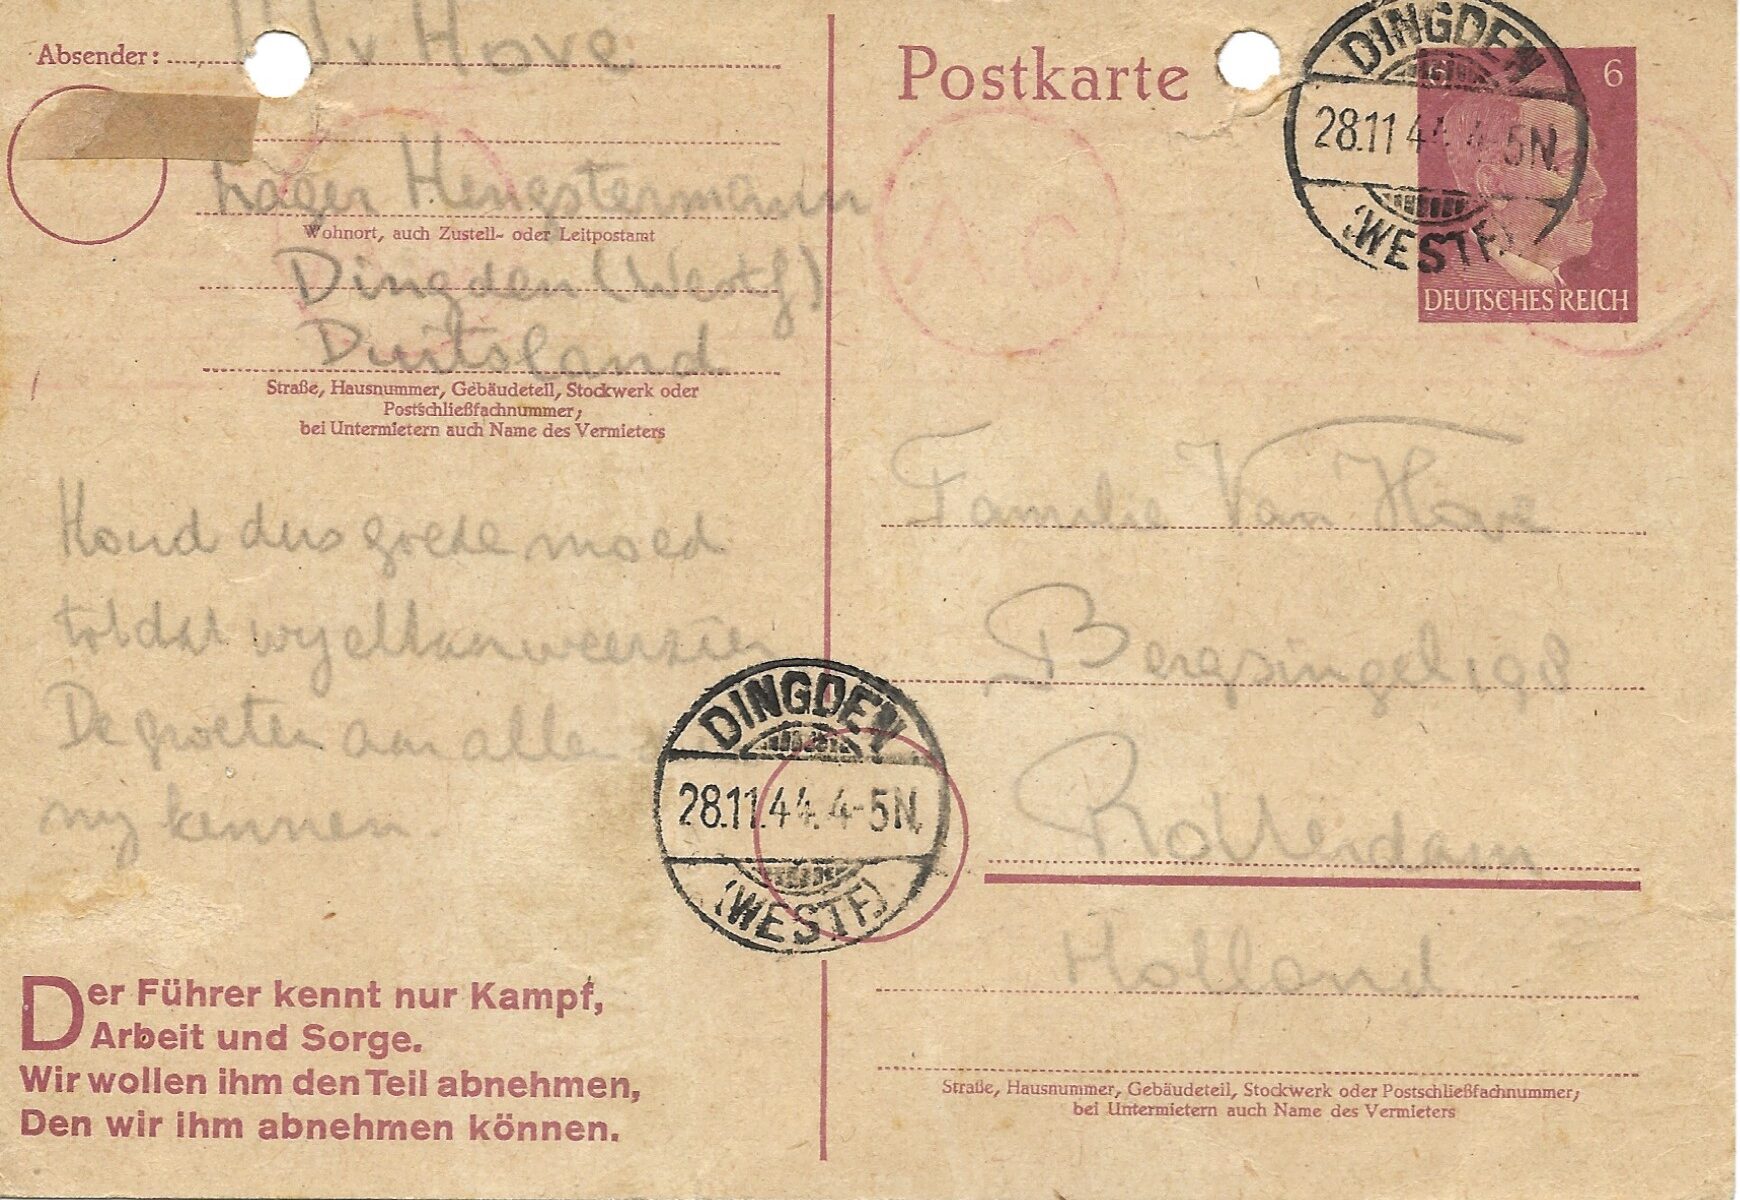 Absender:
v Hove
Lager Hengstermann
Wohnort, auch Zustell- oder Leitpostamt
Dingden (Westf)
Duitsland
Straße, Hausnummer, Gebäudeteil, Stockwerk oder
Postschließfachnummer;
bei Untermietern auch Name des Vermieters
Houd dus goede moed
tot dat wy elkan weerzien
De groeten aan allen
my kennen.
Der Führer kennt nur Kampf,
Arbeit und Sorge.
Wir wollen ihm den Teil abnehmen,
Den wir ihm abnehmen können.
DINGDEN
28.11.44. 4-5N.
(WESTF)
Postkarte
DINGDEN
28.11.44. 4-5N.
(WESTF)
6
DEUTSCHES REICH
Ac
Familie Van Hove
Bergsingel 198
Rotterdam
Holland
Straße, Hausnummer, Gebäudeteil, Stockwerk oder Postschließfachnummer;
bei Untermietern auch Name des Vermieters